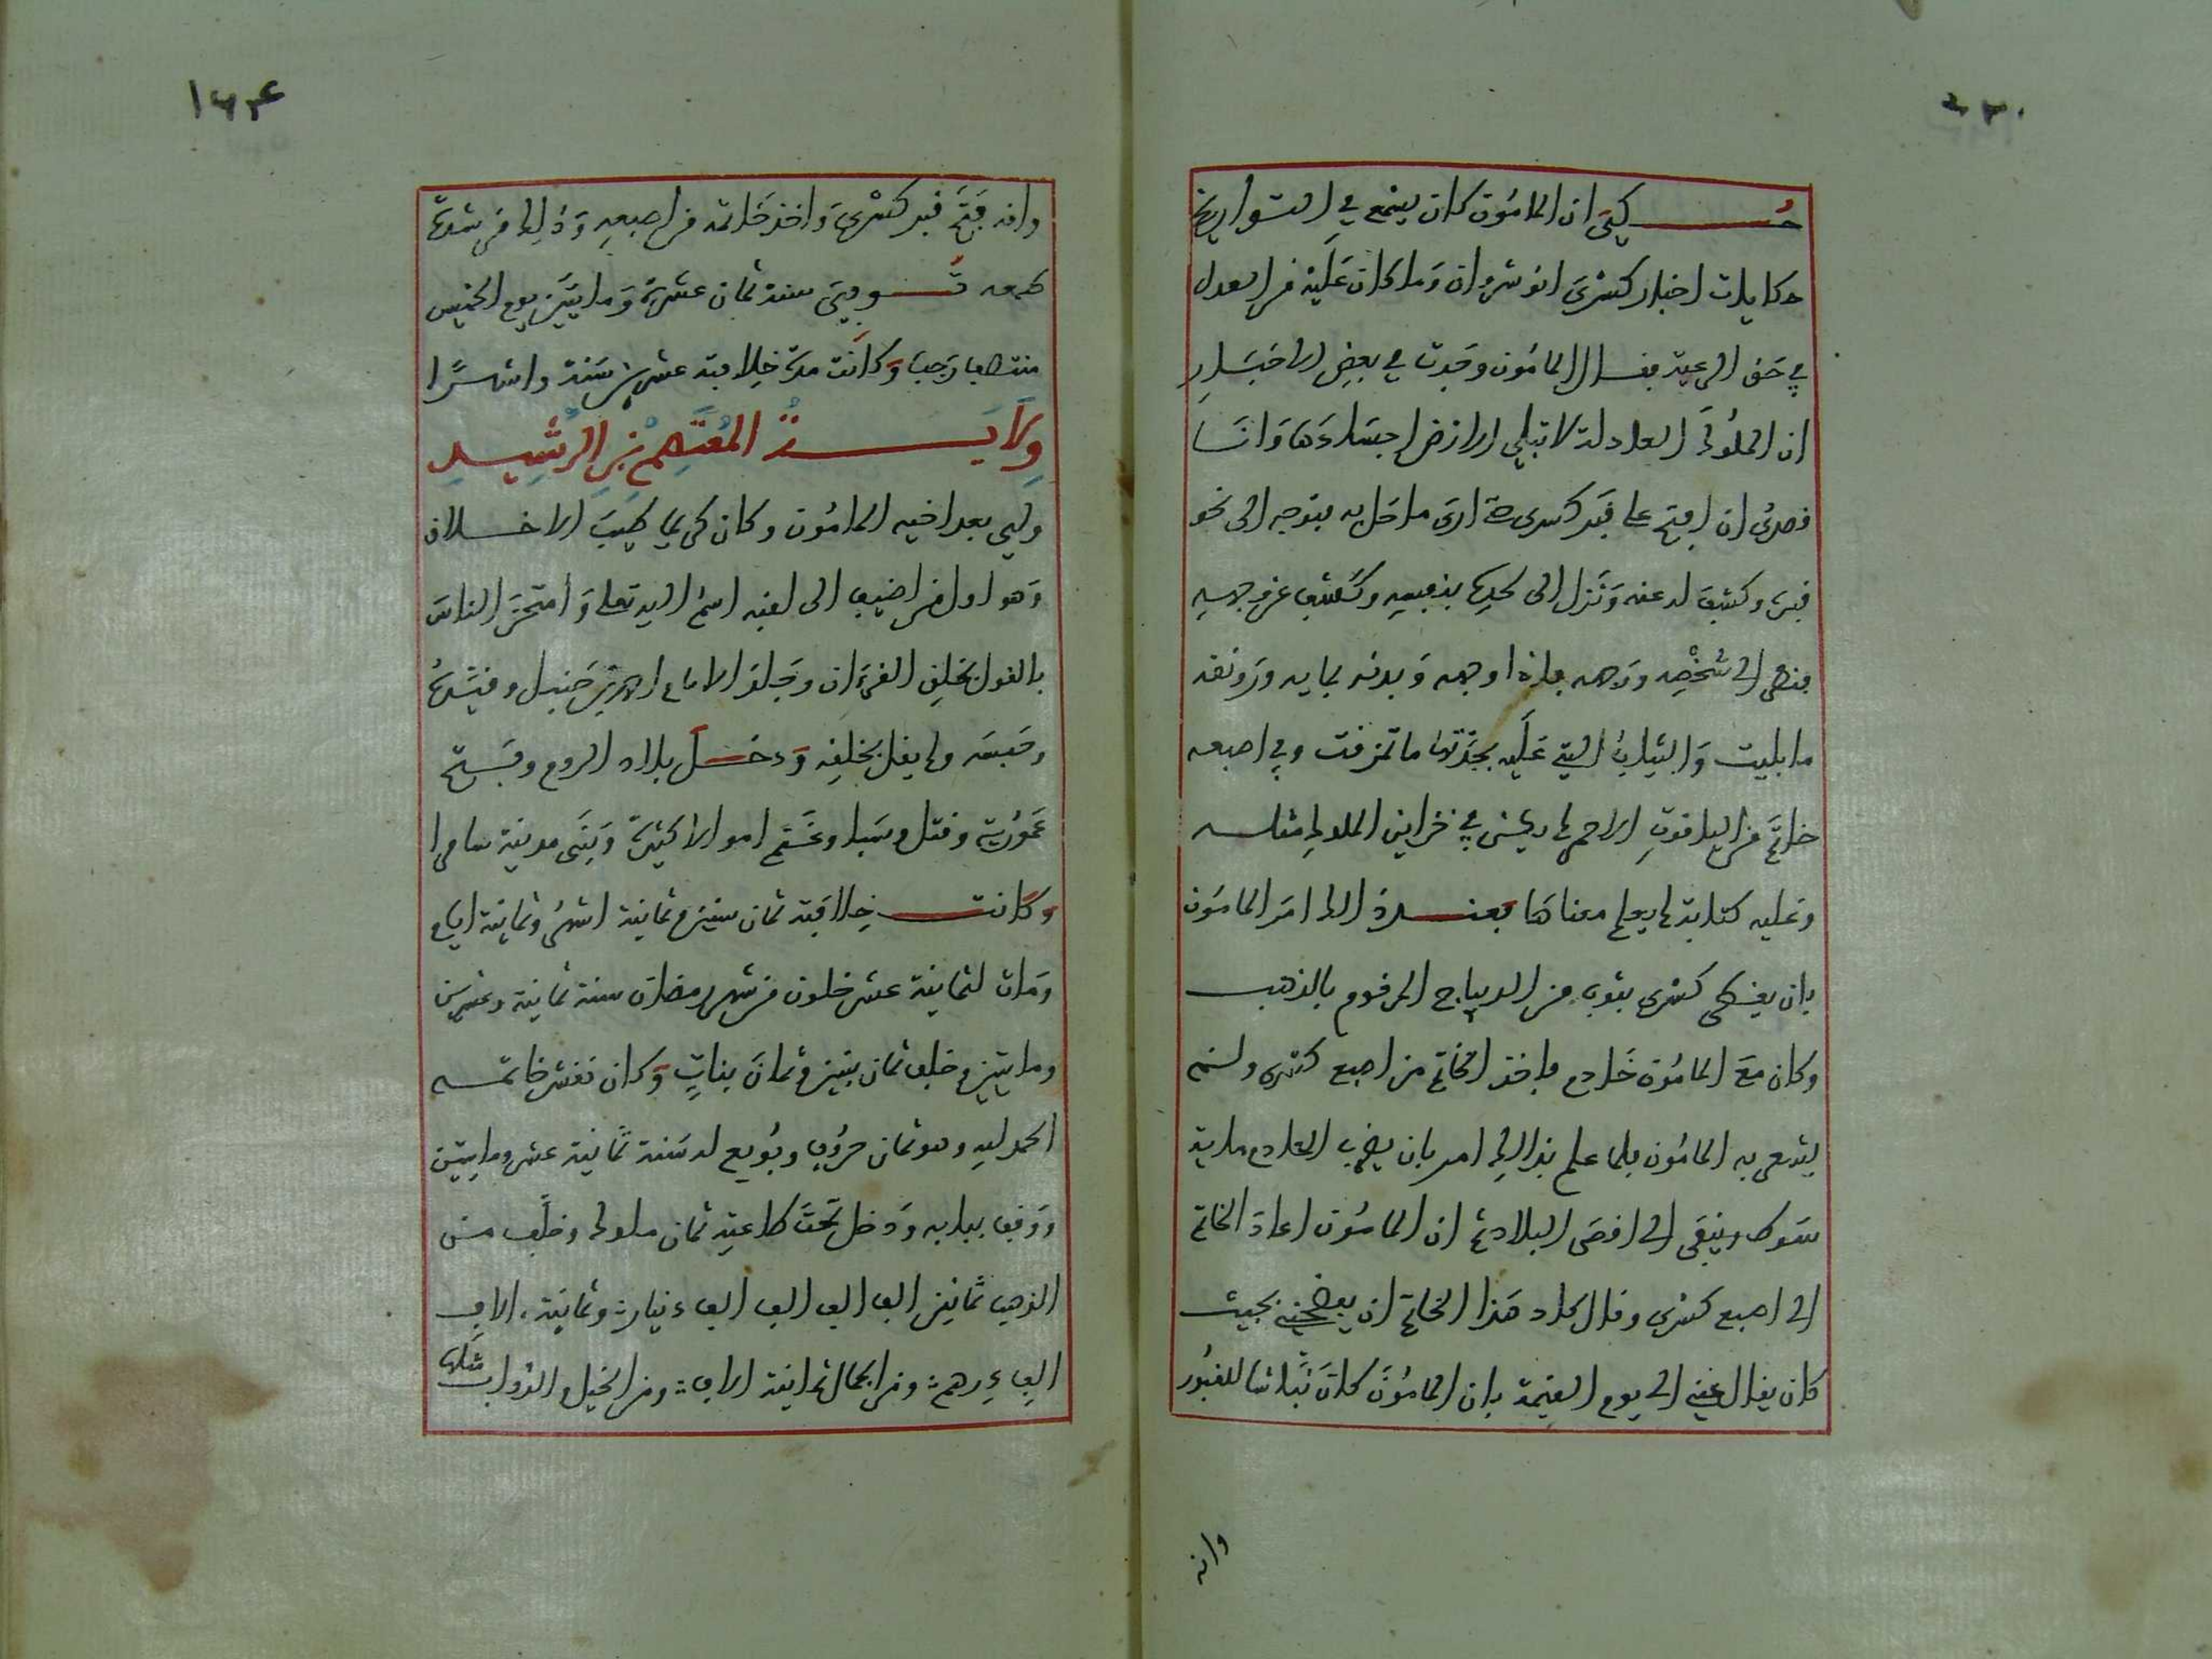 حُكِيَ ان المامُون كان يسمع في التواريخ
حكايات اخبار كسْرَى انوشروان وَما كان عَلَيْه من العدل
في حَق الرعية فقال المامُون وجدت في بعض الاخبَار
ان الملُوكَ العادلة لا تبلي الارْض اجسَادَهَا وَانَا
قصدى ان افتح على قبَر كسرى حتى ارى ما حَل به فتوجه الى نحو
قبره وكشِفَ له عنه وَنَزل الى لحده بنفسِه وكشف عن وجهه
فنظر الى شخْصِه ورَاه فاذا وجهه وَبدنه بمايه ورَونقه
ما بليت وَالثيابُ التي عَلَيه بجدَّتها ما تمزقت وفي اصبعه
خاتَم من الياقوتِ الاحمر لم يكن في خزاين الملوك مثله
وعليه كتابة لم يعلم معناهَا فعند ذلك امَر المامُون
بان يغطى كسْرى بثوب من الديباج المرقوم بالذهب
وكان مَعَ المامُون خَادم فاخذ الخاتم من اصبع كسْرى ولم
يشعر به المامُون فلما علم بذالك امر بان يضرب الخادم ماية
سَوط وينفَى الى اقصَى البلاد ثم ان المامُون اعادَ الخاتم
الى اصبع كسْرى وقال كاد هَذا الخاتم ان يفضحني بحيث
كان يقال عني الى يوم القيمة بان المامُونَ كانَ نَبَّاشا للقبُور
وانه
وانه فتَحَ قبر كسْرىَ وَاخذ خَاتمه من اصبعِه وَذلك من شدة
طمعه تُوفي سنة ثمان عشرة وَمايتَيْن يوم الخميس
منتصف رَجب وَكانت مدة خِلافته عشرين سَنة واشهرًا
وِلَايَةُ المُعْتَصِمْ بْنِ الرَّشِيدِ
ولي بعد اخيه المامُون وكان كريما طيِّبَ الاخلاق
وَهوا اول من اضيف الى لقبه اسمُ الله تعلى وَامتحنَ الناسَ
بالقول بخلقِ القرءَان وَجلدَ الامام احمد بن حَنبل وقيَّده
وحَبسَه ولم يقل بخلقِه وَدخل بلاد الروم وفَتح
عَمُورية وقتل وسَبا وغَنَم اموالا كثيرةً وَبنَى مدينة سامرا
وكانت خِلافته ثمان سنين وثمانية اشهُر وثمانية ايام
وَماتَ لثمانية عشر خلون من شهر رمضان سنة ثمانية وعشرين
ومايتين وخلف ثمان بنين وثمانَ بناتٍ وَكان نقش خاتمه
الحمد لله وهو ثمان حرُوف وبُويع له سَنة ثمانية عشر ومايتين
ووَقف ببابه وَدخل تحتَ طاعتِه ثمان ملوك وخلَف من
الذهب ثمانين الف الف الف الف دينار وثمانية الاف
الف دِرهم ومن الجمال ثمانية الاف ومن الخيل والدواب